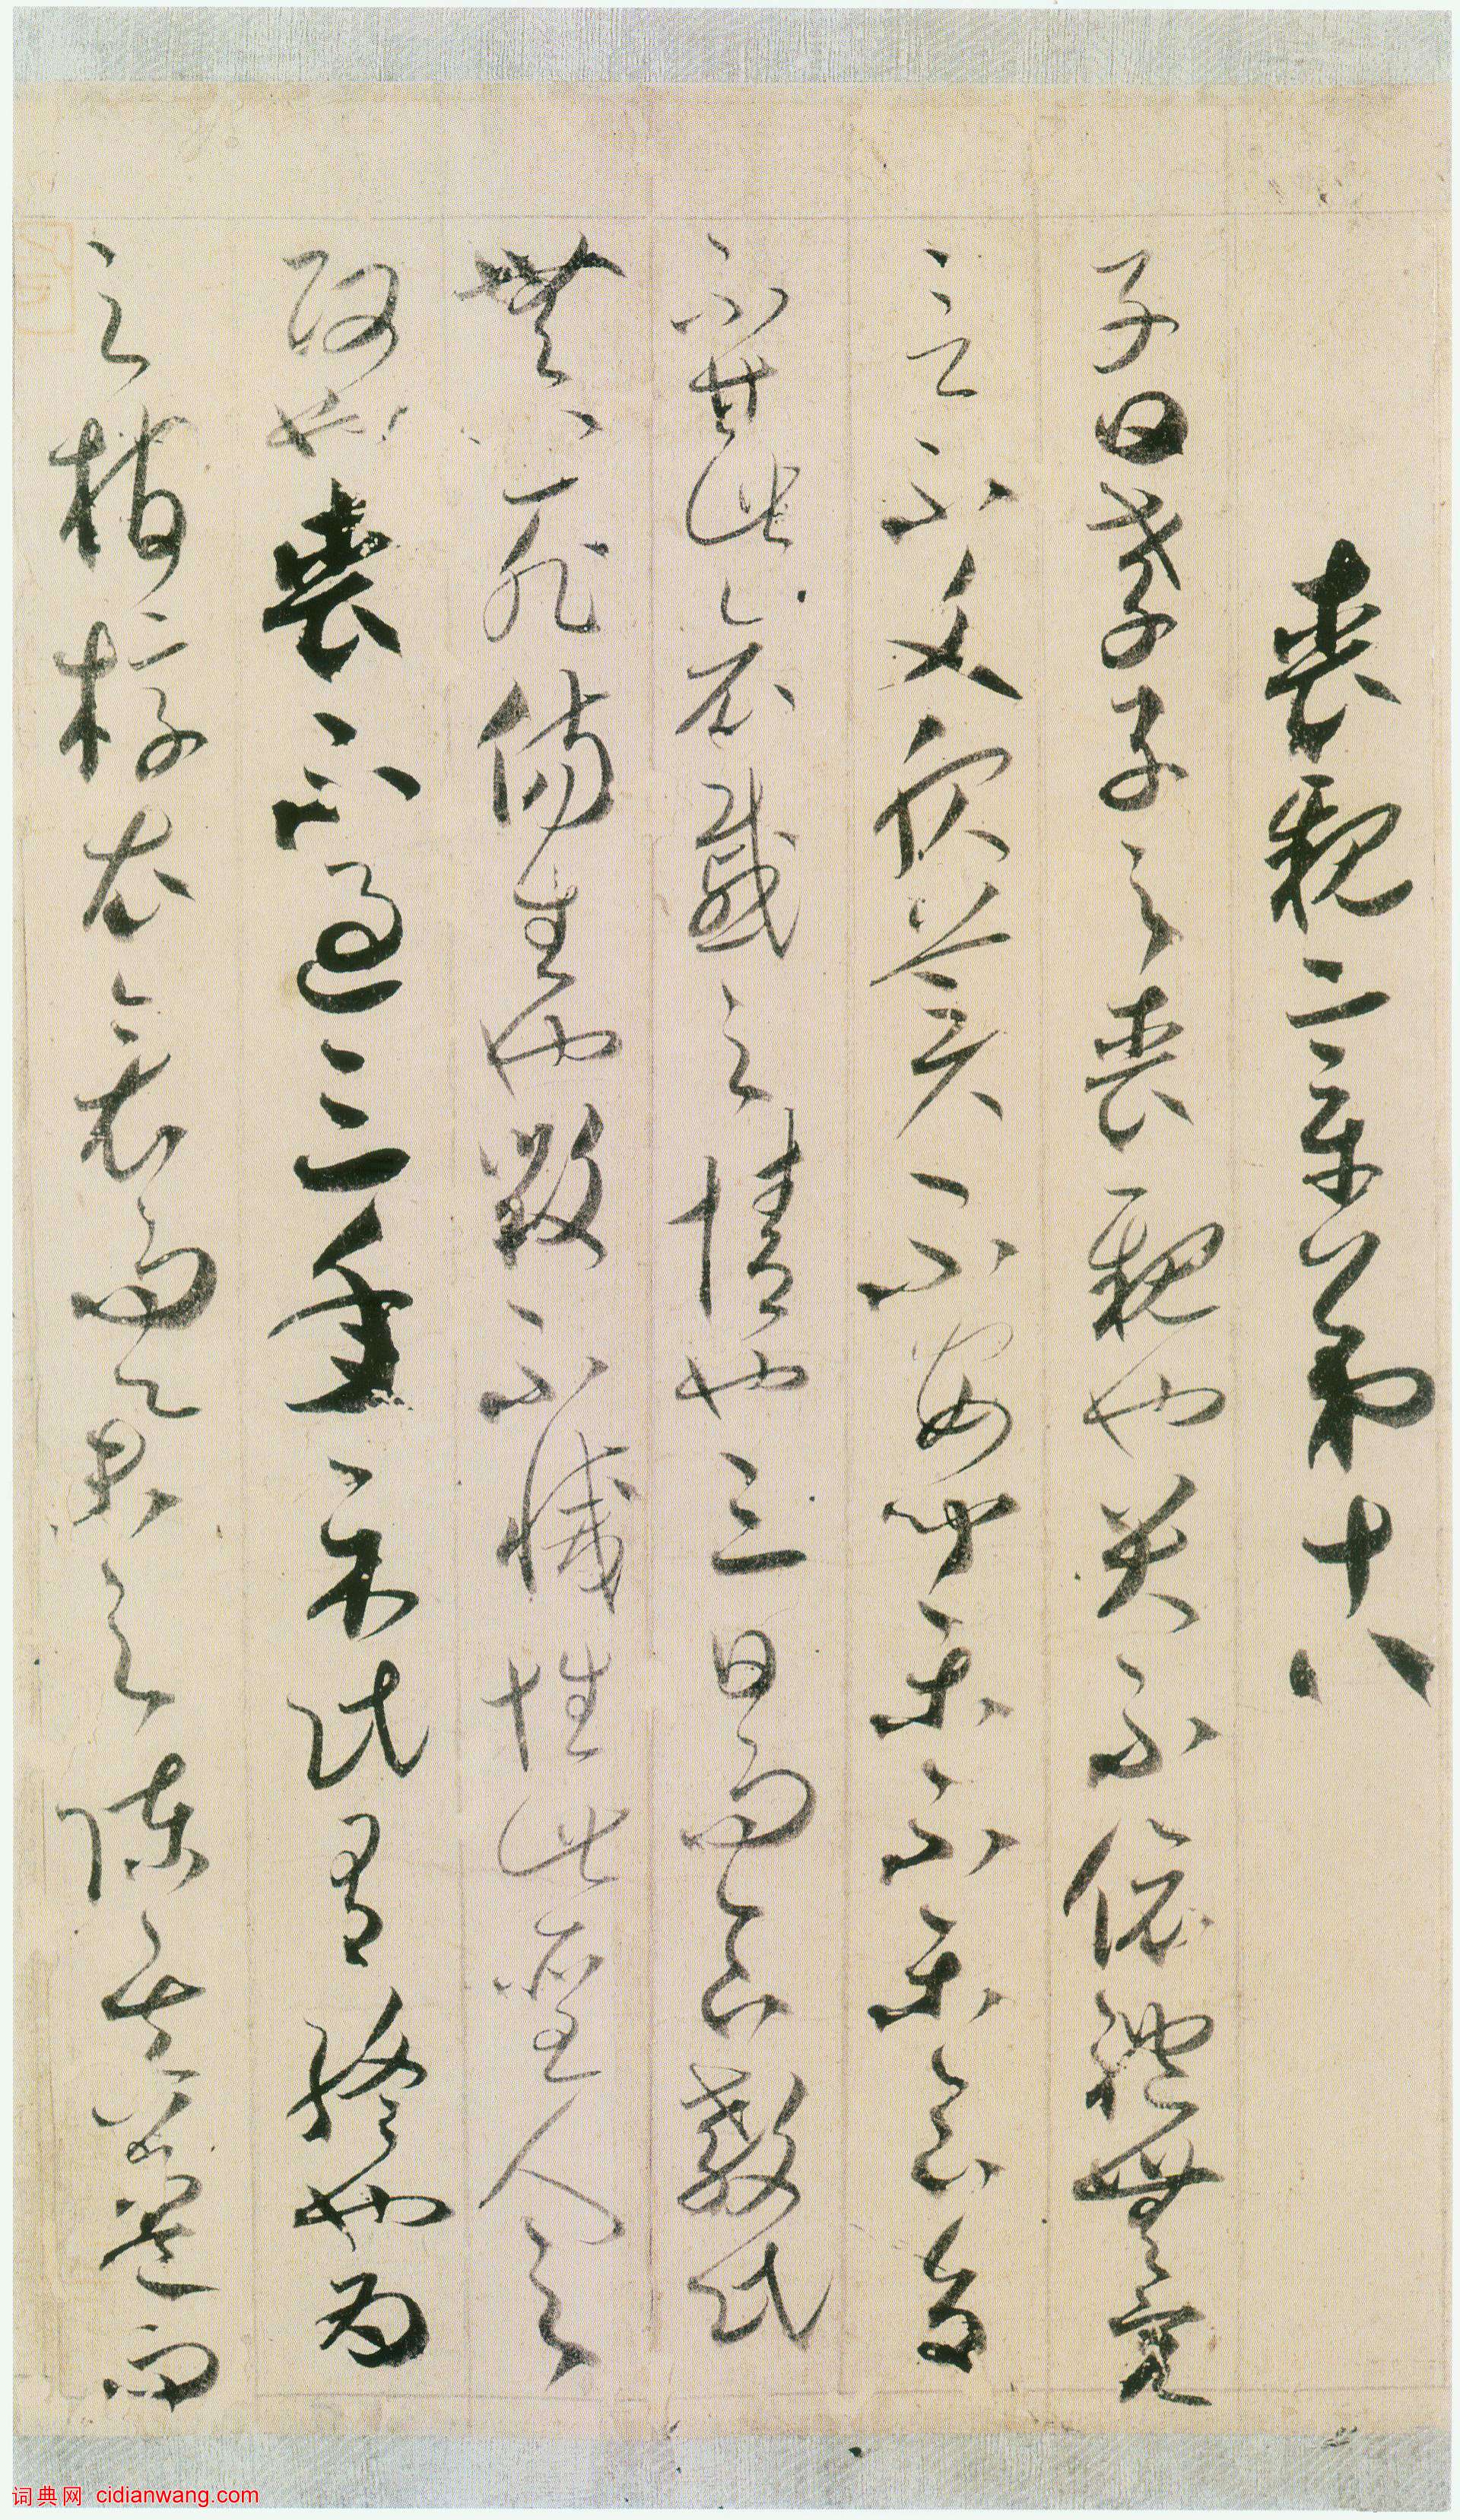 喪親章第十八
子曰孝子之喪親也哭不依禮無容
言不文服美不安聞樂不樂食旨
不甘此哀慼之情也三日而食教民
無以死傷生也毀不滅性此聖人之
政也喪不過三年示民有終也為
之棺椁衣衾而舉之陳其簠簋而
词典网 cidianwang.com